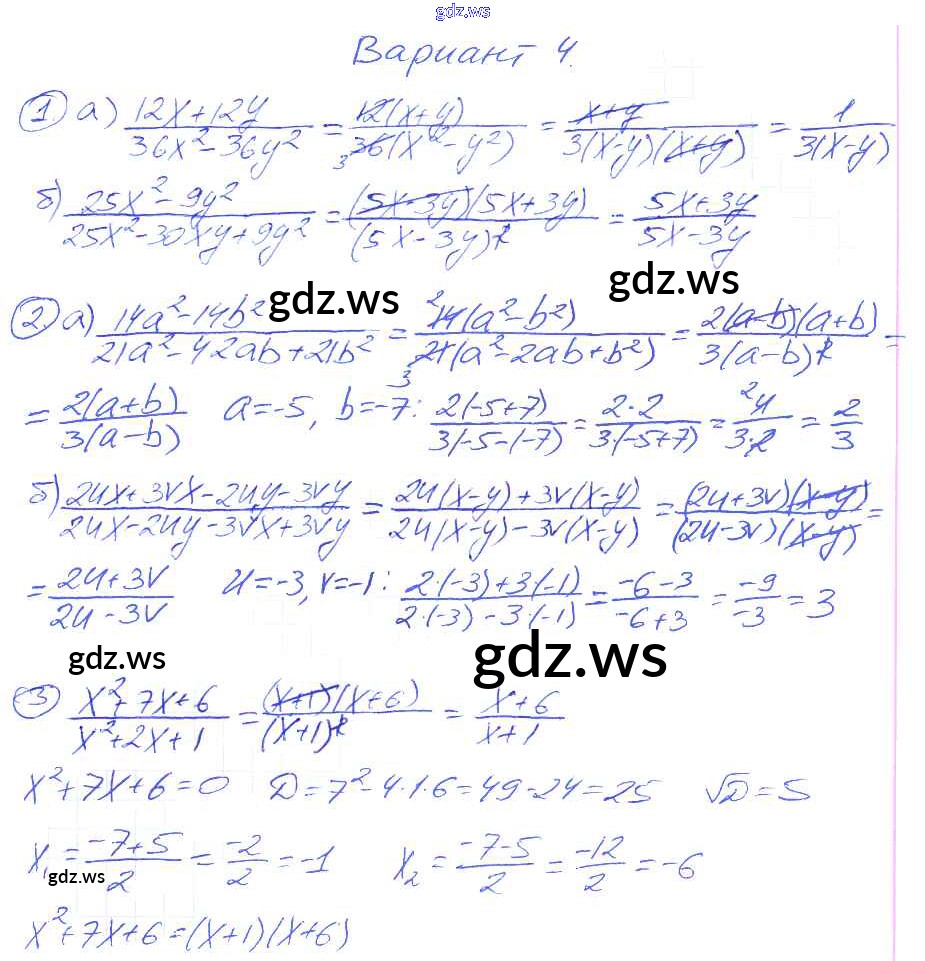 gdz.ws
Вариант 4.
1. а) (12x+12y)/(36x²-36y²) = 12(x+y)/36(x²-y²) = (x+y)/3(x-y)(x+y) = 1/3(x-y)
б) (25x²-9y²)/(25x²-30xy+9y²) = (5x-3y)(5x+3y)/(5x-3y)² = (5x+3y)/(5x-3y)
gdz.ws gdz.ws
2. а) (14a²-14b²)/(21a²-42ab+21b²) = 14(a²-b²)/21(a²-2ab+b²) = 2(a-b)(a+b)/3(a-b)² =
= 2(a+b)/3(a-b) a=-5, b=-7: 2(-5+7)/3(-5-(-7)) = 2·2/3·(-5+7) = 4/3·2 = 2/3
б) (2ux+3vx-2uy-3vy)/(2ux-2uy-3vx+3vy) = (2u(x-y)+3v(x-y))/(2u(x-y)-3v(x-y)) = (2u+3v)(x-y)/(2u-3v)(x-y) =
= (2u+3v)/(2u-3v) u=-3, v=-1: (2·(-3)+3(-1))/(2·(-3)-3·(-1)) = (-6-3)/(-6+3) = -9/-3 = 3
gdz.ws gdz.ws
3 (x²+7x+6)/(x²+2x+1) = (x+1)(x+6)/(x+1)² = (x+6)/(x+1)
x²+7x+6=0 D=7²-4·1·6=49-24=25 √D=5
x₁ = (-7+5)/2 = -2/2 = -1 x₂ = (-7-5)/2 = -12/2 = -6
gdz.ws
x²+7x+6=(x+1)(x+6)